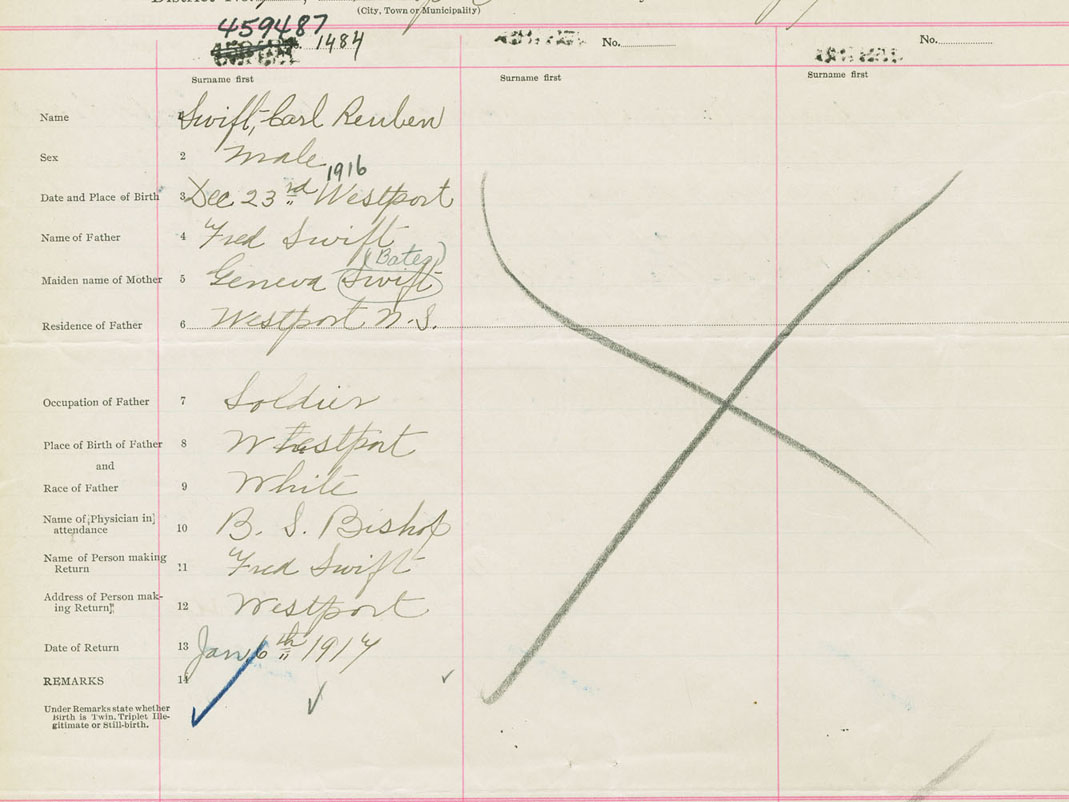 District No.
(City, Town or Municipality)
459487
1484
No.
No.
Surname first
Surname first
Surname first
Name 1 Swift, Carl Reuben
Sex 2 Male
1916
Date and Place of Birth 3 Dec 23rd Westport
Name of Father 4 Fred Swift
(Bates)
Maiden name of Mother 5 Geneva Swift
Residence of Father 6 Westport N.S.
Occupation of Father 7 Soldier
Place of Birth of Father 8 Westport
and
Race of Father 9 White
Name of Physician in
attendance 10 B. S. Bishop
Name of Person making
Return 11 Fred Swift
Address of Person mak-
ing Return 12 Westport
Date of Return 13 Jan 6th 1917
REMARKS 14
Under Remarks state whether
Birth is Twin, Triplet Ille-
gitimate or Still-birth.